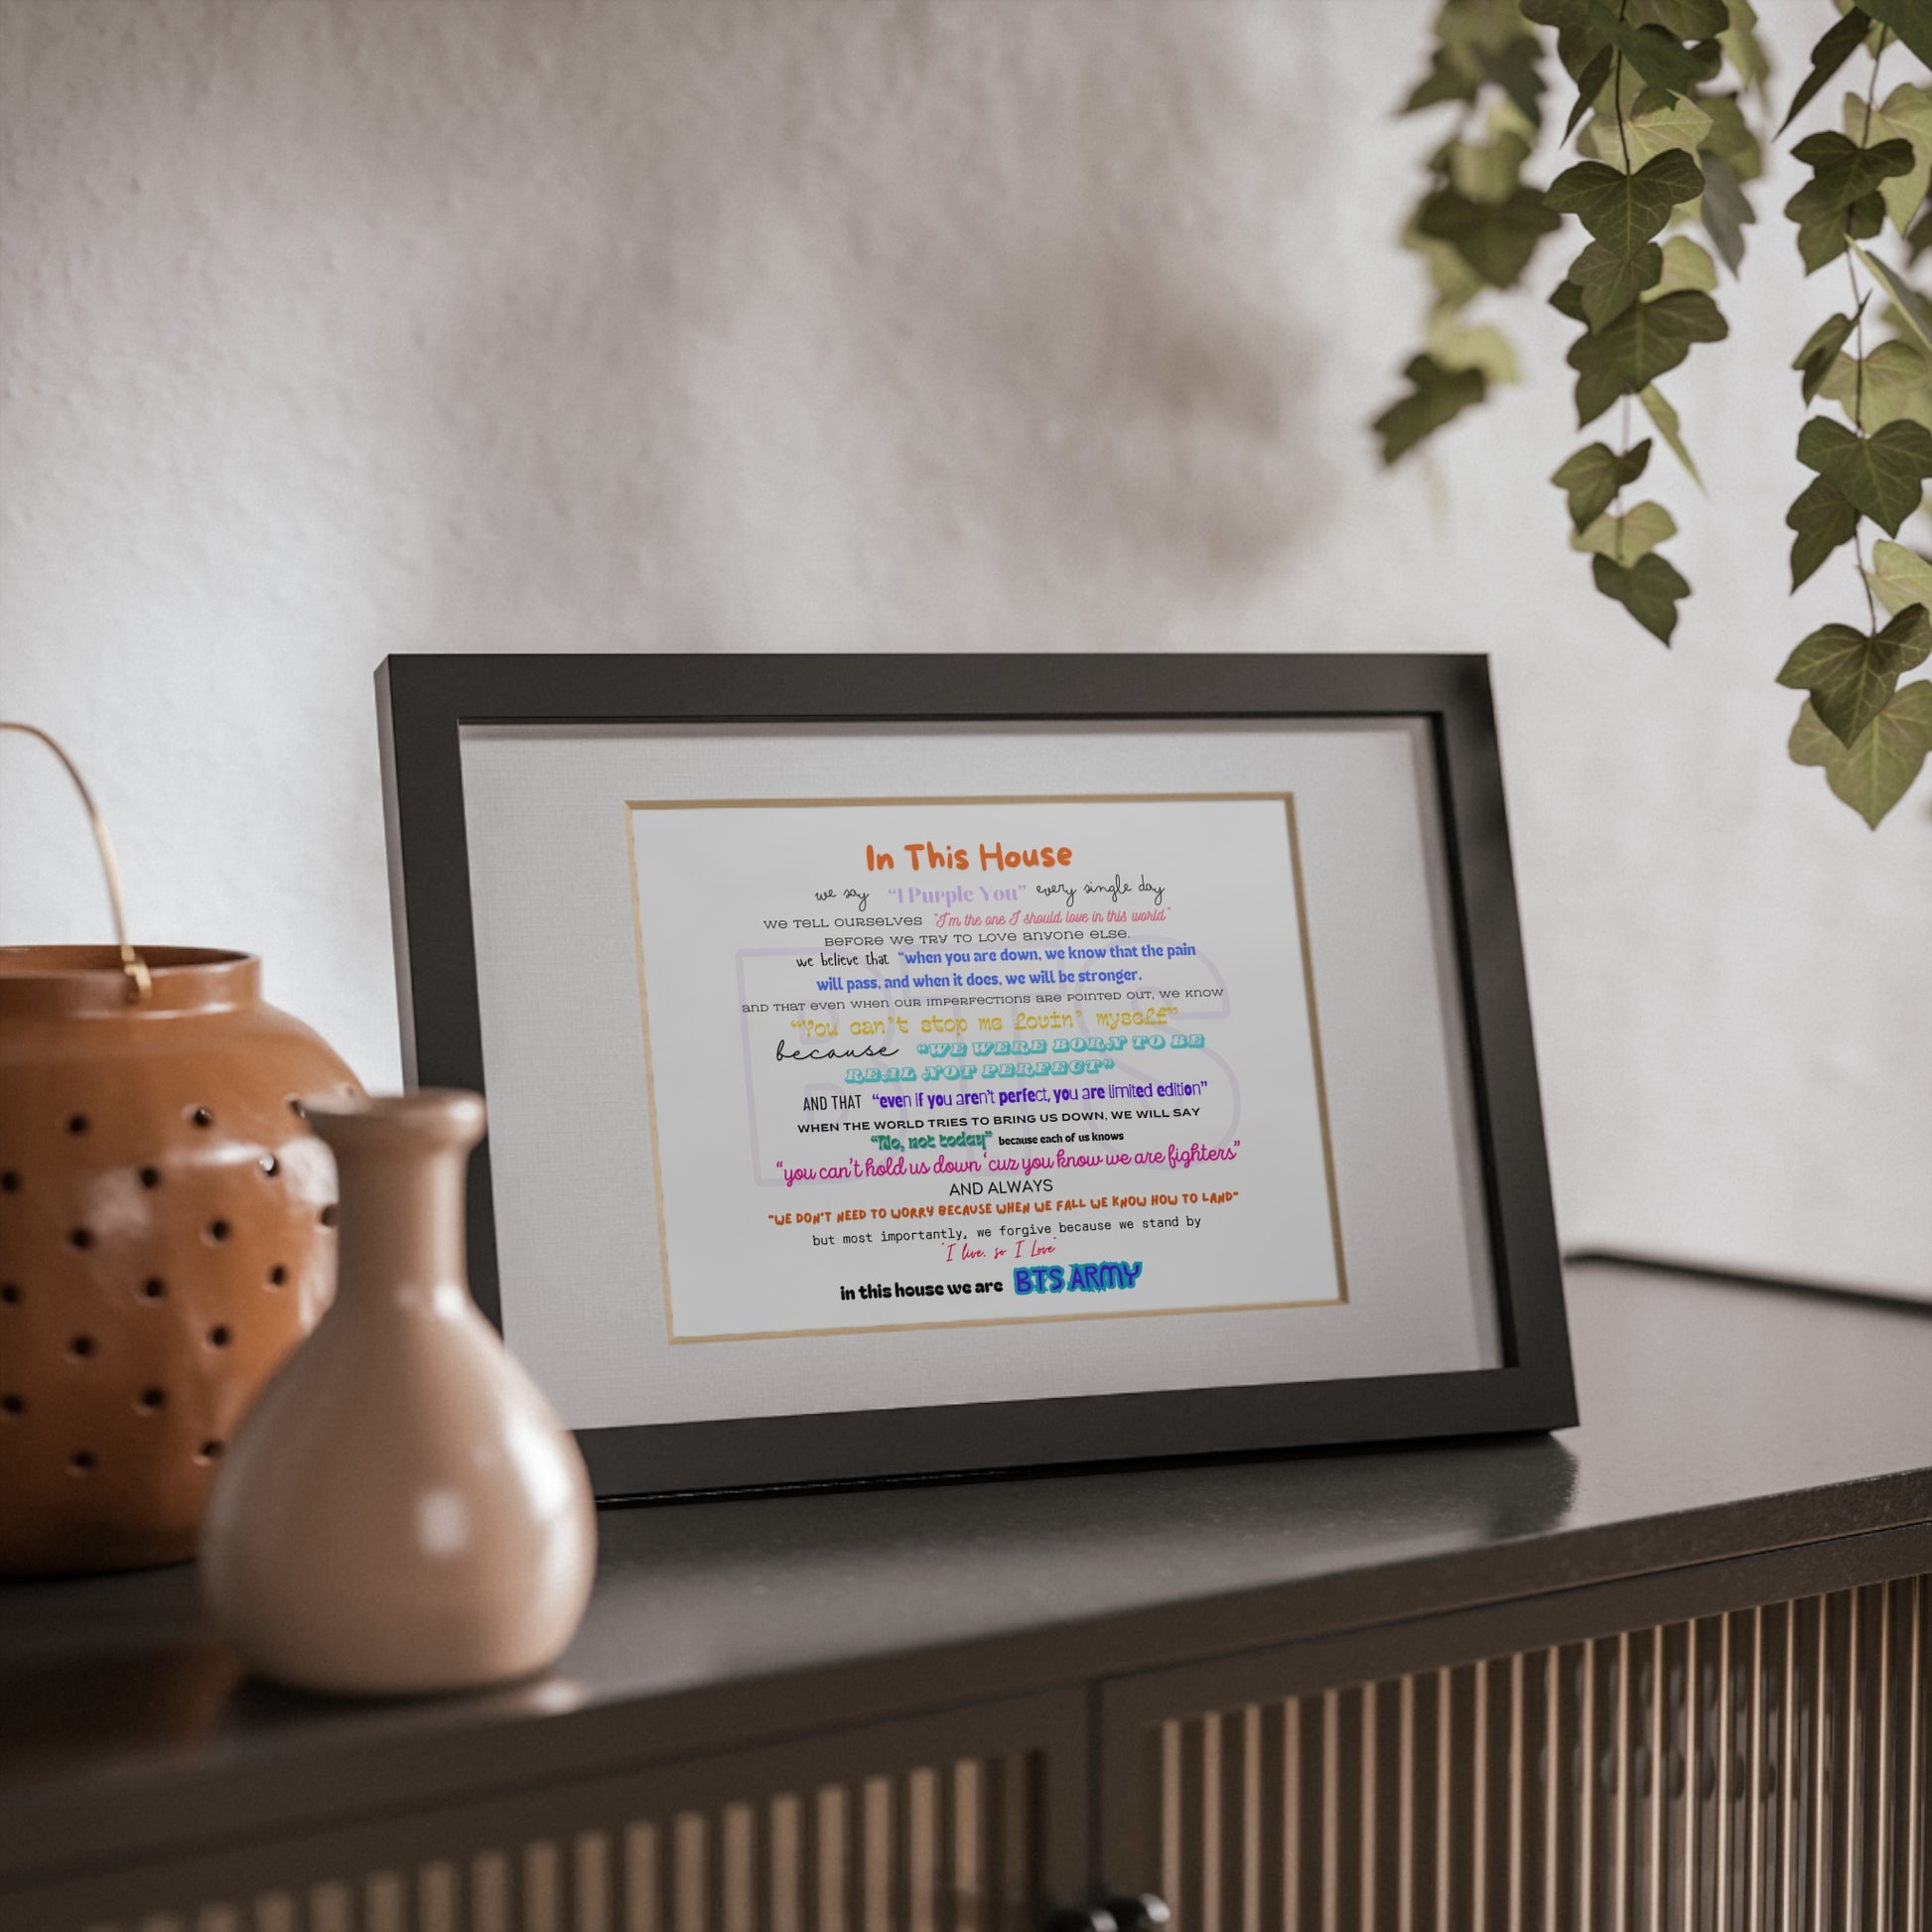 In This House
we say "I Purple You" every single day
WE TELL OURSELVES "I'm the one I should love in this world"
BEFORE WE TRY TO LOVE ANYONE ELSE.
we believe that "when you are down, we know that the pain
will pass, and when it does, we will be stronger.
AND THAT EVEN WHEN OUR IMPERFECTIONS ARE POINTED OUT, WE KNOW
""You can't stop me lovin' myself"
because "WE WERE BORN TO BE
REAL NOT PERFECT"
AND THAT "even if you aren't perfect, you are limited edition"
WHEN THE WORLD TRIES TO BRING US DOWN, WE WILL SAY
"No, not today" because each of us knows
"you can't hold us down 'cuz you know we are fighters"
AND ALWAYS
"WE DON'T NEED TO WORRY BECAUSE WHEN WE FALL WE KNOW HOW TO LAND"
but most importantly, we forgive because we stand by
"I live, so I Love"
in this house we are BTS ARMY
BTS